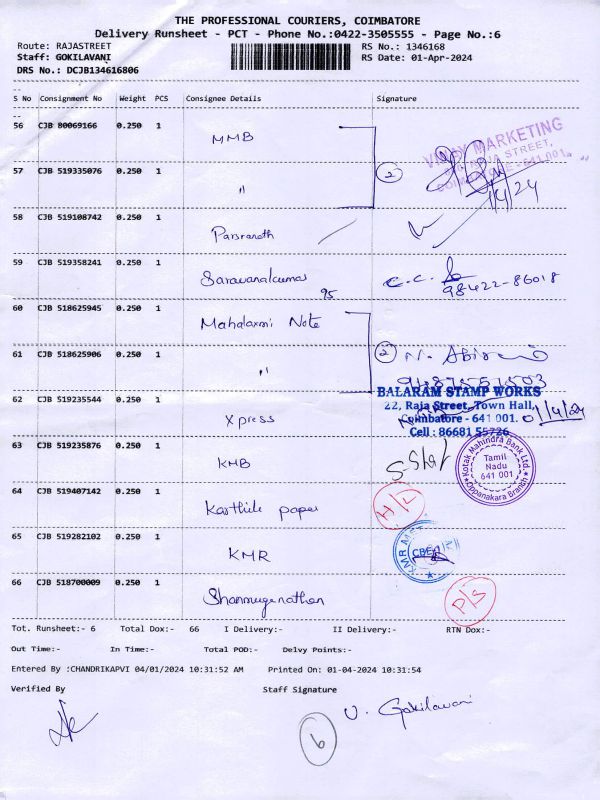 THE PROFESSIONAL COURIERS, COIMBATORE
Delivery Runsheet - PCT - Phone No.:0422-3505555 - Page No.:6
Route: RAJASTREET RS No.: 1346168
Staff: GOKILAVANI RS Date: 01-Apr-2024
DRS No.: DCJB134616806
S No Consignment No Weight PCS Consignee Details Signature
56 CJB 80069166 0.250 1 MMB
VIJAY MARKETING
RAJA STREET,
641 001
57 CJB 519335076 0.250 1 " 2
1/4/24
58 CJB 519108742 0.250 1 Parsranath
59 CJB 519358241 0.250 1 Saravanakumar C.C.
95 98422-86018
60 CJB 518625945 0.250 1 Mahalaxmi Note
61 CJB 518625906 0.250 1 " 2 N.
BALARAM STAMP WORKS
22, Raja Street, Town Hall,
Coimbatore - 641 001.
Cell : 86681 55726
01/4/24
62 CJB 519235544 0.250 1 Xpress
63 CJB 519235876 0.250 1 KMB
Kotak Mahindra Bank Ltd.
Tamil
Nadu
641 001
Oppanakara Branch
64 CJB 519407142 0.250 1 Karthik paper H/L
65 CJB 519282102 0.250 1 KMR
KMR
CBE
66 CJB 518700009 0.250 1 Shanmuganathan P/S
Tot. Runsheet:- 6 Total Dox:- 66 I Delivery:- II Delivery:- RTN Dox:-
Out Time:- In Time:- Total POD:- Delvy Points:-
Entered By :CHANDRIKAPVI 04/01/2024 10:31:52 AM Printed On: 01-04-2024 10:31:54
Verified By Staff Signature
U. Gokilavani
6